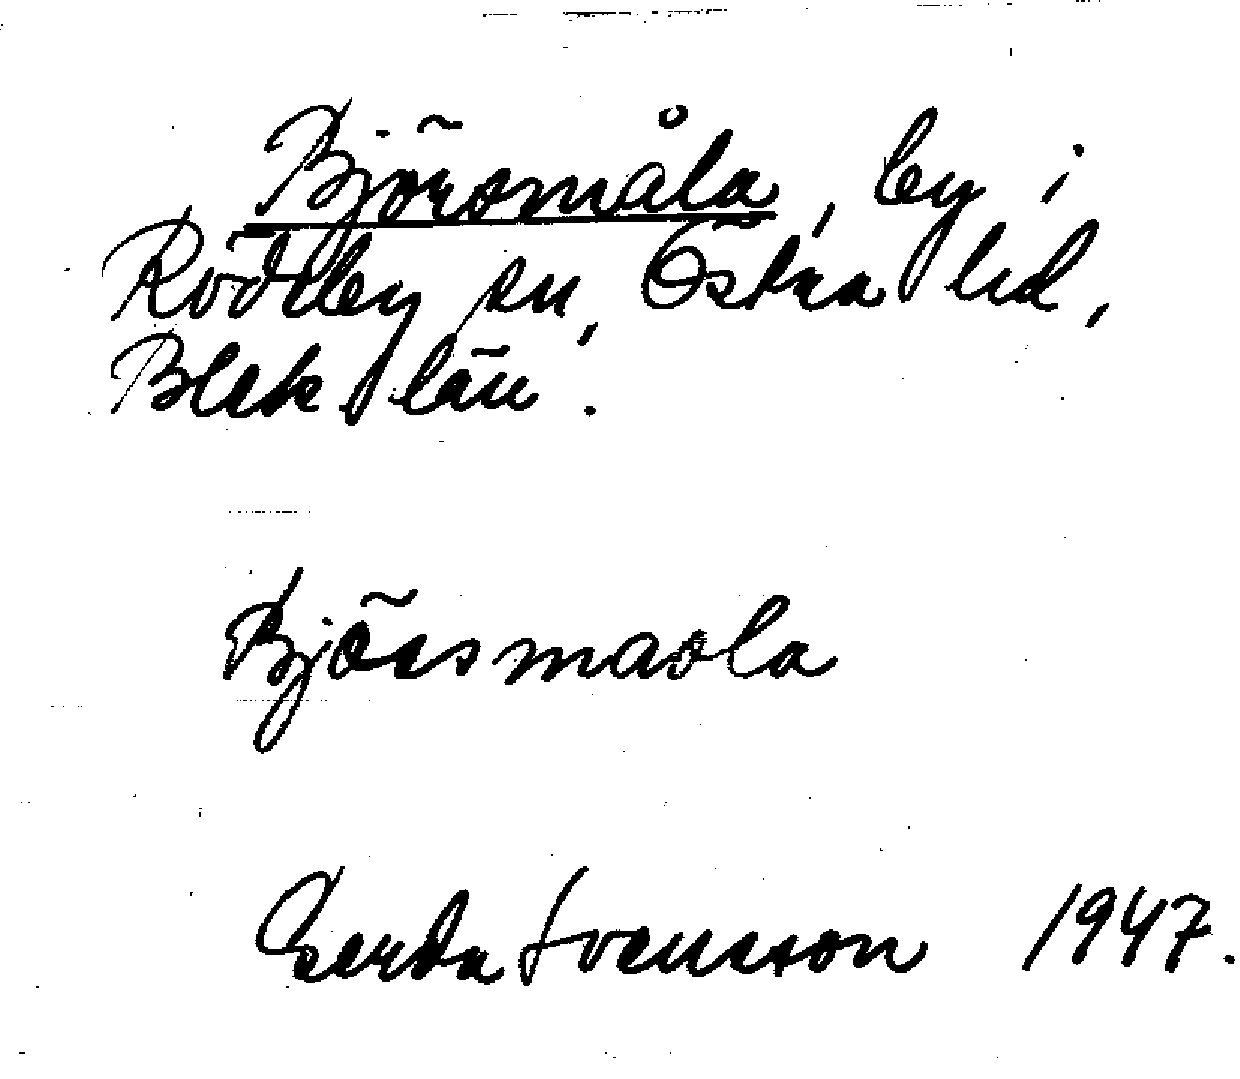 Björsmåla, by i
Rödeby sn, Östra hd,
Blek län.
Björsmaola
Gerda Svensson 1947.